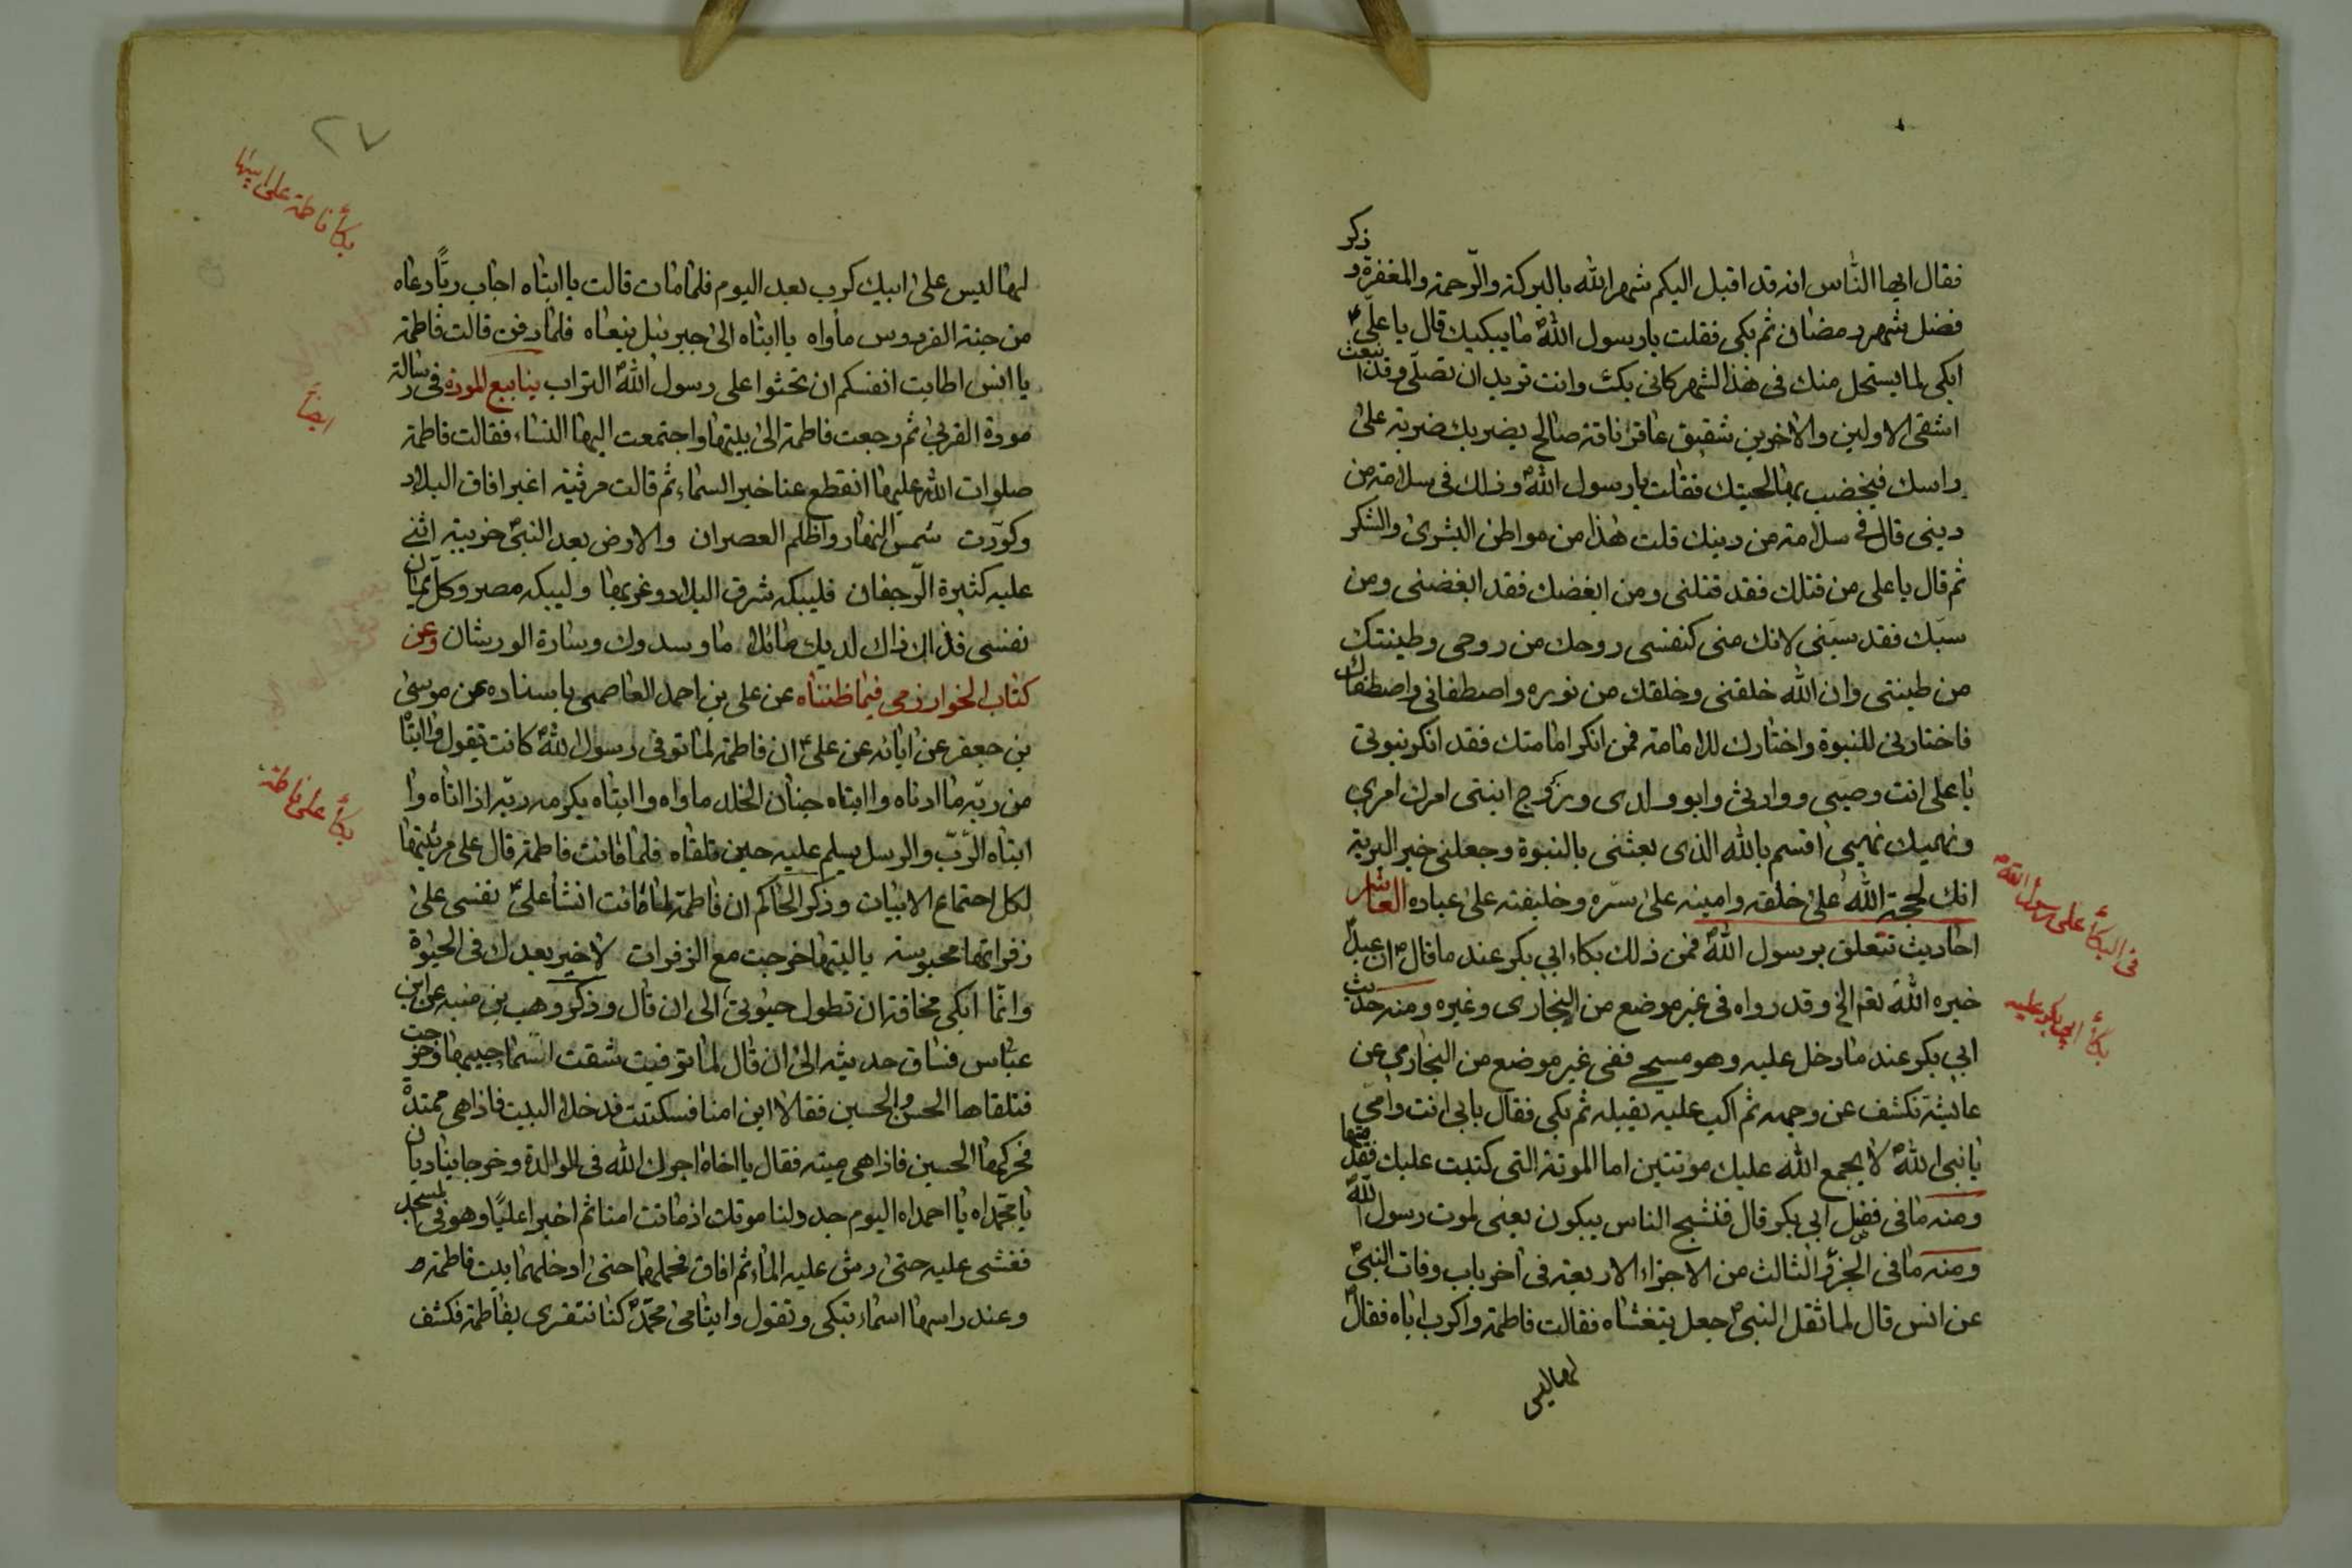 فقال ايها الناس انه قد اقبل اليكم شهر الله بالبركة والرّحمة والمغفرة و ذكر
فضل شهر رمضان ثم بكى فقلت يا رسول الله ما يبكيك قال يا علىّ
ابكى لما يستحل منك فى هذا الشهر كانى بك وانت تريد ان تصلّى وقد انبعث
اشقى الاولين والاخرين شقيق عاقر ناقة صالح يضربك ضربة على
راسك فيخضب بها لحيتك فقلت يا رسول الله وذلك فى سلامة من
دينى قال فى سلامة من دينك قلت هذا من مواطن البشرى والشكر
ثم قال يا على من قتلك فقد قتلنى ومن ابغضك فقد ابغضنى ومن
سبّك فقد سبّنى لانك منى كنفسى روحك من روحى وطينتك
من طينتى وان الله خلقنى وخلقك من نوره واصطفانى واصطفاك
فاختارنى للنبوة واختارك للامامة فمن انكر امامتك فقد انكر نبوتى
يا على انت وصيى ووارثى وابو ولدى وزوج ابنتى امرك امرى
ونهيك نهيى اقسم بالله الذى بعثنى بالنبوة وجعلنى خير البرية
انك لحجة الله على خلقه وامينه على سرّه وخليفته على عباده العاشر
فى البكأ على رسول الله
احاديث تتعلق برسول الله فمن ذلك بكاء ابي بكر عند ما قال ان عبدا
بكأ ابى بكر عليه
خيره الله نعم الخ وقد رواه فى غير موضع من البخارى وغيره ومنه حديث
ابي بكر عند ما دخل عليه وهو مسجى ففى غير موضع من البخارى عن
عايشة فكشف عن وجهه ثم اكب عليه يقبله ثم بكى فقال بابى انت وامى
يا نبى الله لا يجمع الله عليك موتتين اما الموتة التى كتبت عليك فقد متها
ومنه ما فى فضل ابي بكر قال فنشج الناس يبكون يعنى لموت رسول الله
ومنه ما فى الجزء الثالث من الاجزاء الاربعة فى اخر باب وفات النبى
عن انس قال لما ثقل النبى جعل يتغشاه فقالت فاطمة واكرب اباه فقال
لها ليس
٢٧
بكأ فاطمة على ابيها
لها ليس على ابيك كرب بعد اليوم فلما مات قالت يا ابتاه اجاب ربًّا دعاه
من جنة الفردوس مأواه يا ابتاه الى جبرئيل ننعاه فلما دفن قالت فاطمة
يا انس اطابت انفسكم ان تحثوا على رسول الله التراب ينابيع المودة فى رسالة
ايضاً
مودة القربى ثم رجعت فاطمة الى بيتها واجتمعت اليها النساء فقالت فاطمة
صلوات الله عليها انقطع عنا خبر السماء ثم قالت مرثية اغبر افاق البلاد
وكوّرت شمس النهار واظلم العصران والارض بعد النبى خربة
عليه كثيرة الرّجفان فليبكه شرق البلاد وغربها وليبكه مصر وكلّ يمان
نفسى فداك لديك ماوسدوك وسادة الورشان وعن
كتاب الخوارزمى فيما ظنناه عن على بن احمد العاصمى باسناده عن موسى
بن جعفر عن ابائه عن على ان فاطمة لما توفى رسول الله كانت تقول وا ابتاه
من ربّه ما ادناه وا ابتاه جنان الخلد ماواه وا ابتاه يكرمه ربّه اذا اتاه وا
بكأ على فاطمة
ابتاه الرّبّ والرسل يسلم عليه حين تلقاه فلما ماتت فاطمة قال على مرثيتها
لكل اجتماع الابيات وذكر الحاكم ان فاطمة لما ماتت انشأ علىّ نفسى على
زفراتها محبوسة يا ليتها خرجت مع الزفرات لا خير بعدك فى الحيوة
وانّما ابكى مخافة ان تطول حيوتى الى ان قال وذكر وهب بن منبه عن ابن
عبّاس فساق حديثه الى ان قال لما توفيت شقت اسماء جيبها وخرجت
فتلقاها الحسن والحسين فقالا اين امنا فسكتت فدخلا البيت فاذا هى ممتدة
فحركها الحسين فاذا هى ميتة فقال يا اخاه اجرك الله فى الوالدة وخرجا يناديان
يا محمّداه يا احمداه اليوم جدد لنا موتك اذ ماتت امنا ثم اخبرا عليًا وهو فى المسجد
فغشى عليه حتى رش عليه الماء ثم افاق فحملهما حتى ادخلهما بيت فاطمة
وعند راسها اسماء تبكى وتقول وايتامى محمّد كنا نتعزى بفاطمة فكشف